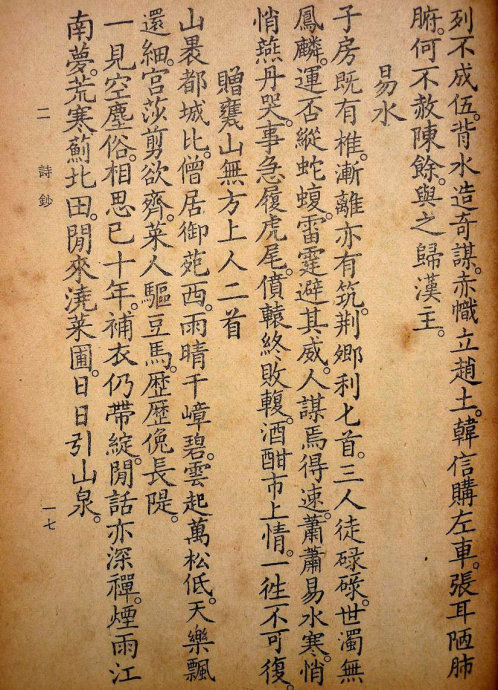 列不成伍。背水造奇謀。赤幟立趙土。韓信購左車。張耳陋肺
腑。何不赦陳餘。與之歸漢主。
易水
子房既有椎。漸離亦有筑。荆卿利匕首。三人徒碌碌。世濁無
鳳麟。運否縱蛇蝮。雷霆避其威。人謀焉得速。蕭蕭易水寒。悄
悄燕丹哭。事急履虎尾。僨轅終敗輹。酒酣市上情。一徃不可復。
贈甕山無方上人二首
山裹都城北。僧居御苑西。雨晴千嶂碧。雲起萬松低。天樂飄
還細。宮莎剪欲齊。菜人驅豆馬。歷歷俛長隄。
一見空塵俗。相思已十年。補衣仍帶綻。閒話亦深禪。煙雨江
南夢。荒寒薊北田。閒來澆菜圃。日日引山泉。
二 詩鈔 一七